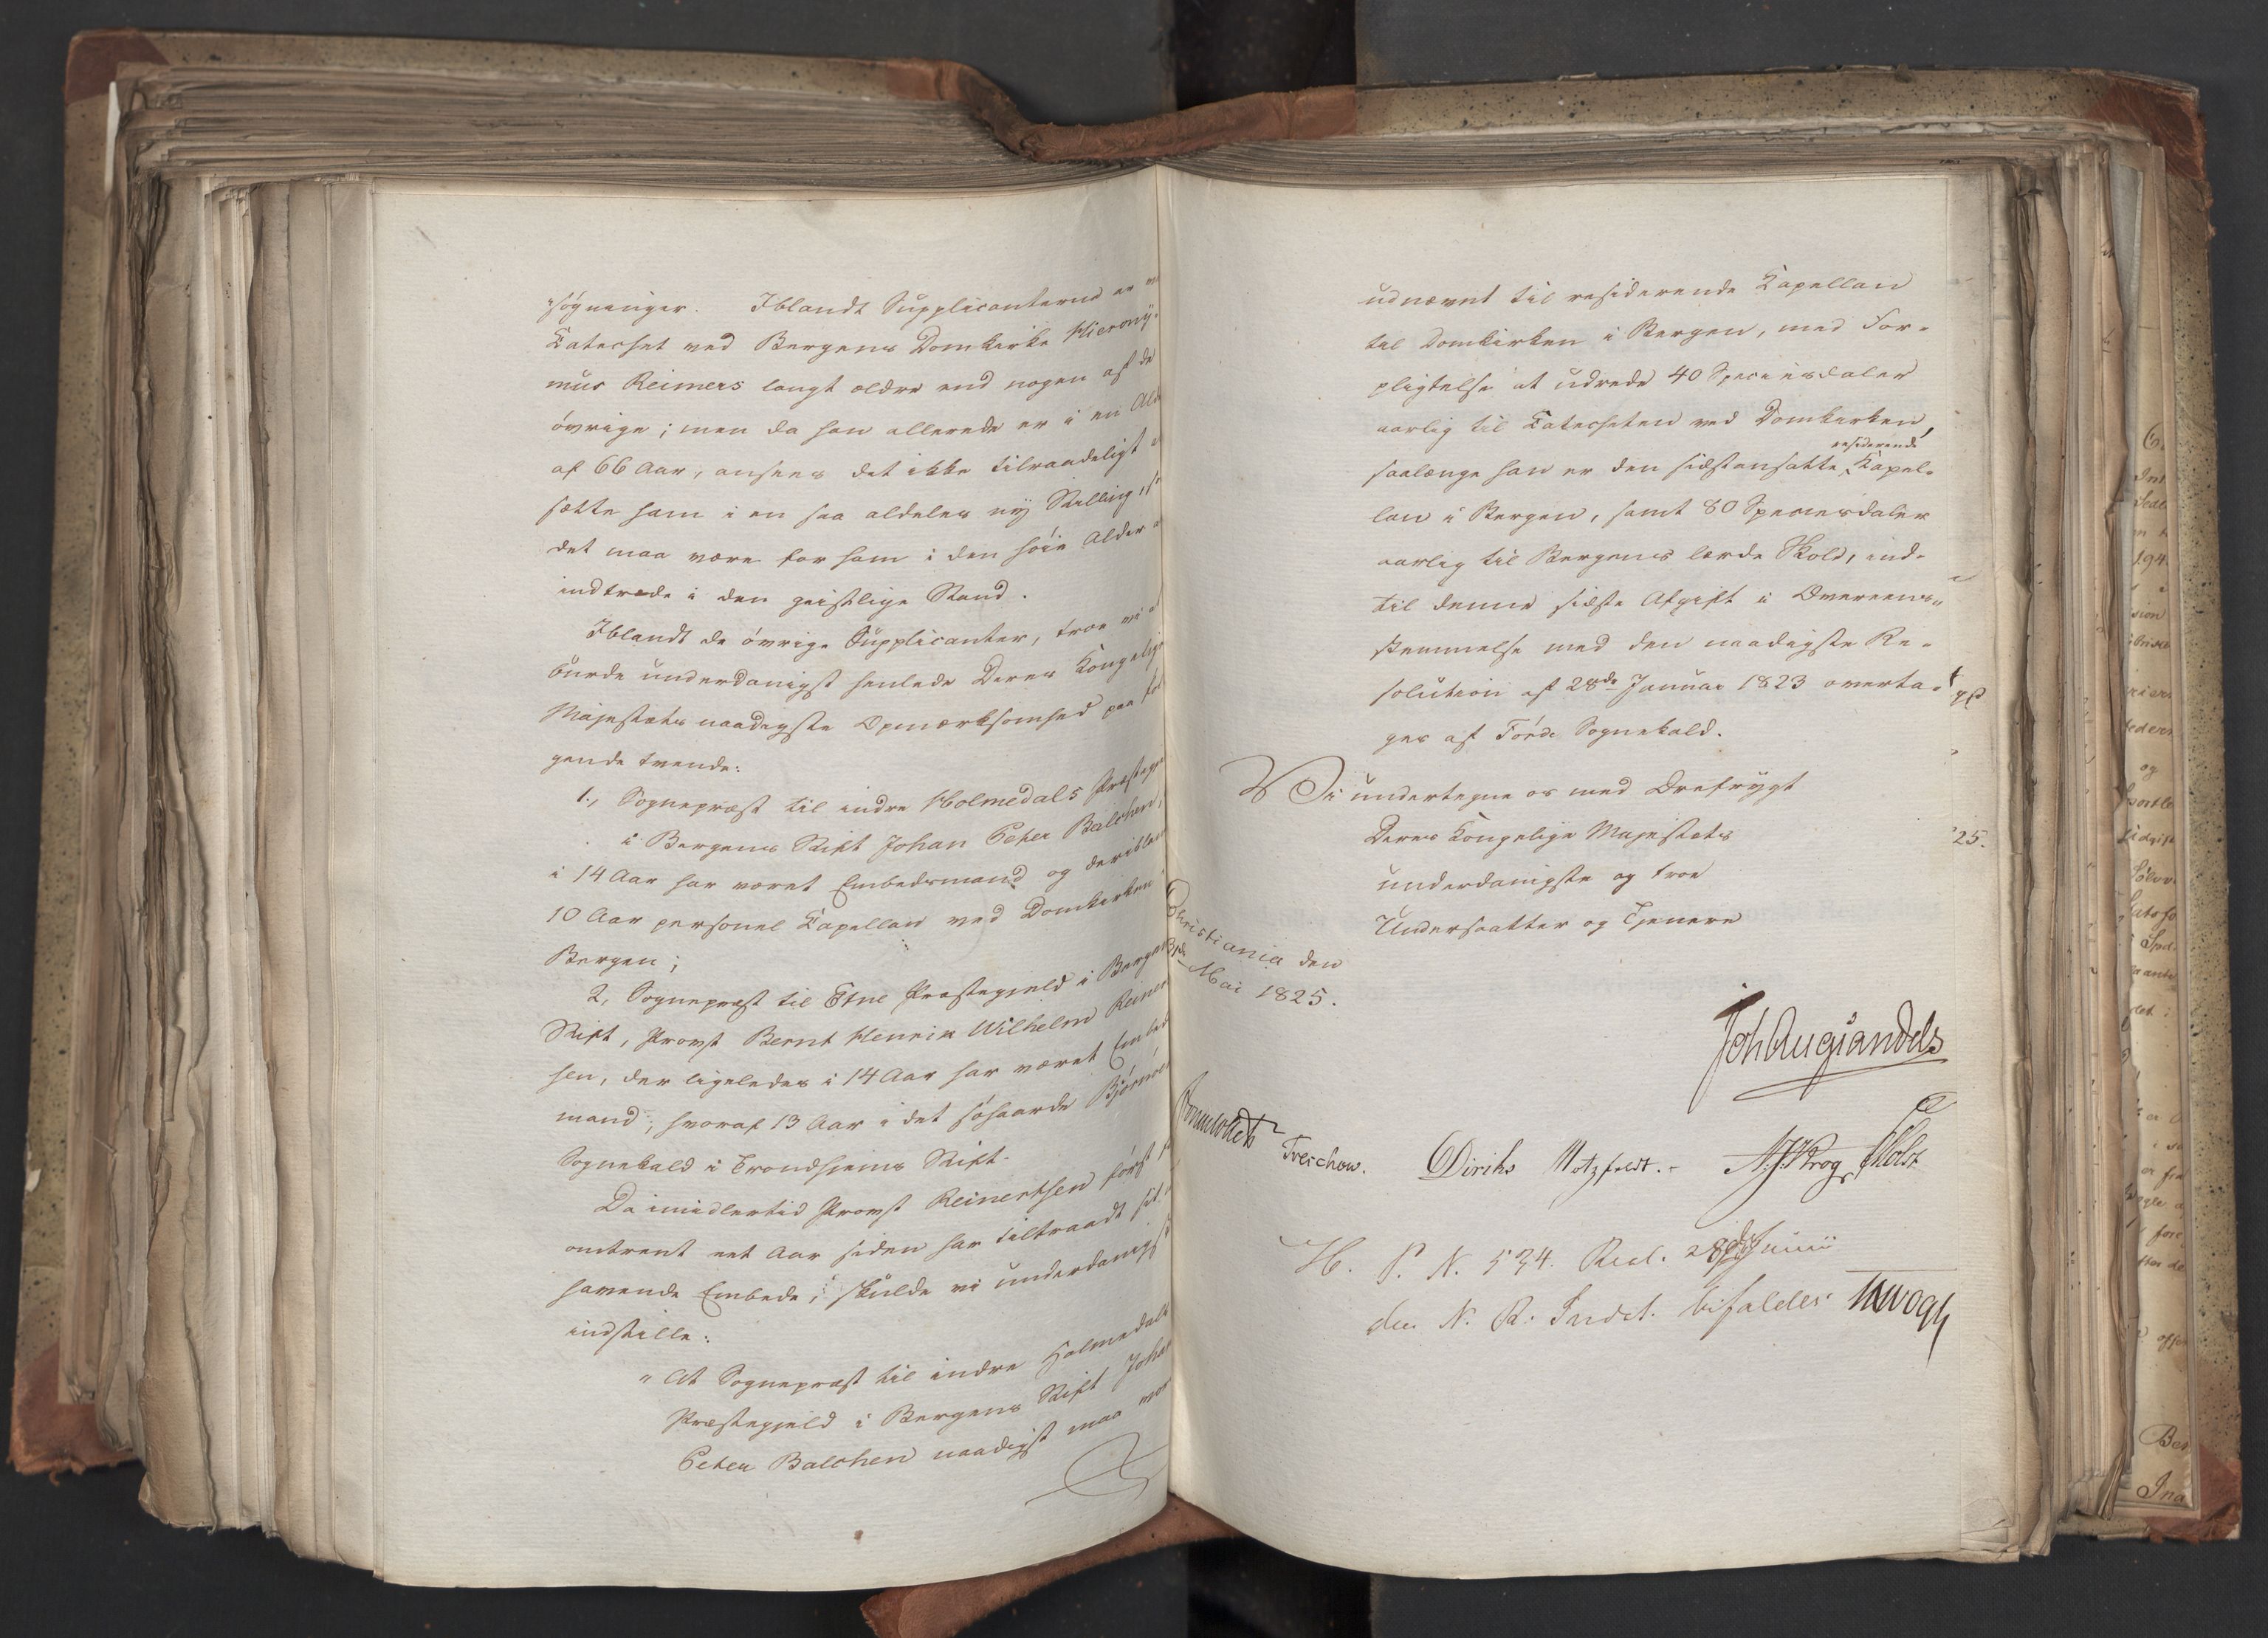 søgninger. Iblandt Supplicanterne er
Catechet ved Bergens Domkirke Hierony-
mus Reimers langt ældre end nogen af de
øvrige; men da han allerede er i en Ald
af 66 Aar, ansees det ikke tilraadeligt
sætte ham i en saa aldeles ny Stilling,
det maa være for ham i den høie Alder
indtræde i den geistlige Stand.
Iblandt de øvrige Supplicanter, troe vi
burde underdanigst henlede Deres Kongelige
Majestæts naadigste Opmærksomhed paa føl
gende tvende:
1., Sognepræst til indre Holmedals Præstegje
i Bergens Stift Johan Peter Balchen,
i 14 Aar har været Embedsmand og deribla
10 Aar personel Capellan ved Domkirken
Bergen;
2, Sognepræst til Etne Præstegjeld i Bergen
Stift, Provst Bernt Henrik Wilhelm Reiner
sen, der ligeledes i 14 Aar har været Embed
mand, hvoraf 13 Aar i det søhaarde Bjørnøer
Sognekald i Trondhjems Stift.
Da imidlertid Provst Reinertsen først
omtrent eet Aar siden har tiltraadt sit
havende Embede, skulde vi underdanigst
indstille:
"At Sognepræst til indre Holmedals
Præstegjeld i Bergens Stift Johan
Peter Balchen naadigst maa vor
udnævnt til residerende Capellan
til Domkirken i Bergen, med For-
pligtelse at udrede 40 Speciesdaler
aarlig til Catecheten ved Domkirken,
residerende
saalænge han er den sidstansatte Kapel-
lan i Bergen, samt 80 Speciesdaler
aarlig til Bergens lærde Skole, ind-
til denne sidste Afgift i Overeens-
stemmelse med den naadigste Re-
solution af 28de Januar 1823 overta-
ges af Førde Sognekald.
Vi undertegne os med Ærefrygt
Deres Kongelige Majestæts
underdanigste og troe
Undersaatter og Tjenere
Christiania den
Mai 1825.
Joh Aug Sandels
Sommerhielm Treschow. Diriks Motzfeldt. Krog Holst
H. P. N. 534. Resl. 28de Junii
den N. R. Indst. bifaldes. Vogt
25.